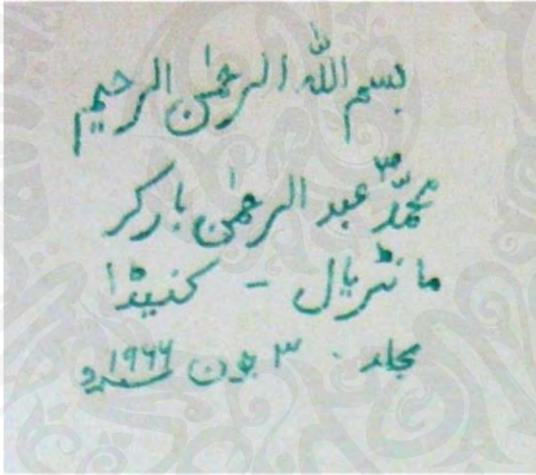 بسم اللہ الرحمٰن الرحیم
محمدؐ عبد الرحمٰن بارکر
مانٹریال - کنیڈا
مجلد ۳ جون ۱۹۶۶